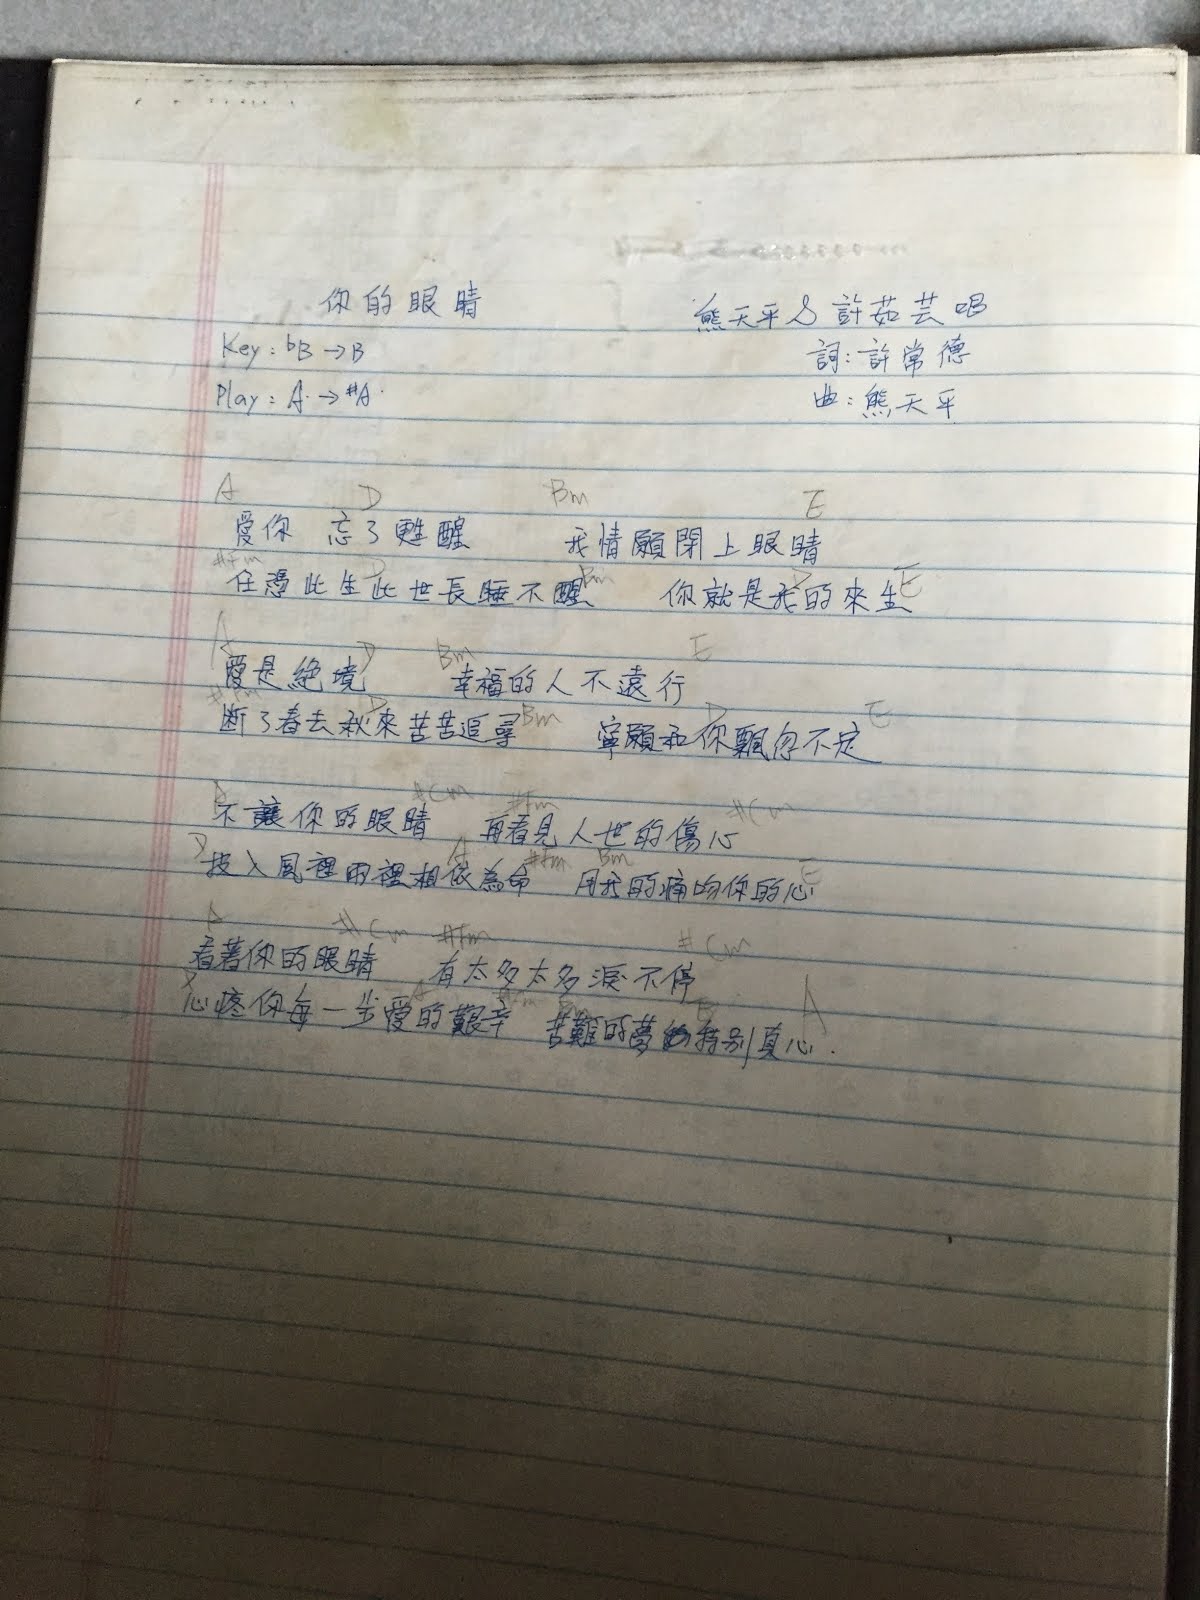 你的眼睛
熊天平&許茹芸唱
Key: bB→B
詞:許常德
Play: A→#A
曲:熊天平
A D Bm E
愛你 忘了甦醒 我情願閉上眼睛
#Fm D Bm D E
任憑此生此世長睡不醒 你就是我的來生
A D Bm E
愛是絕境 幸福的人不遠行
#Fm D Bm D E
斷了春去秋來苦苦追尋 寧願和你飄忽不定
A #Cm #Fm #Cm
不讓你的眼睛 再看見人世的傷心
D A #Fm Bm E
投入風裡雨裡相依為命 用我的痛吻你的心
A #Cm #Fm #Cm
看著你的眼睛 有太多太多淚不停
A #Fm E A
心疼你每一步愛的艱辛 苦難的夢特別真心.